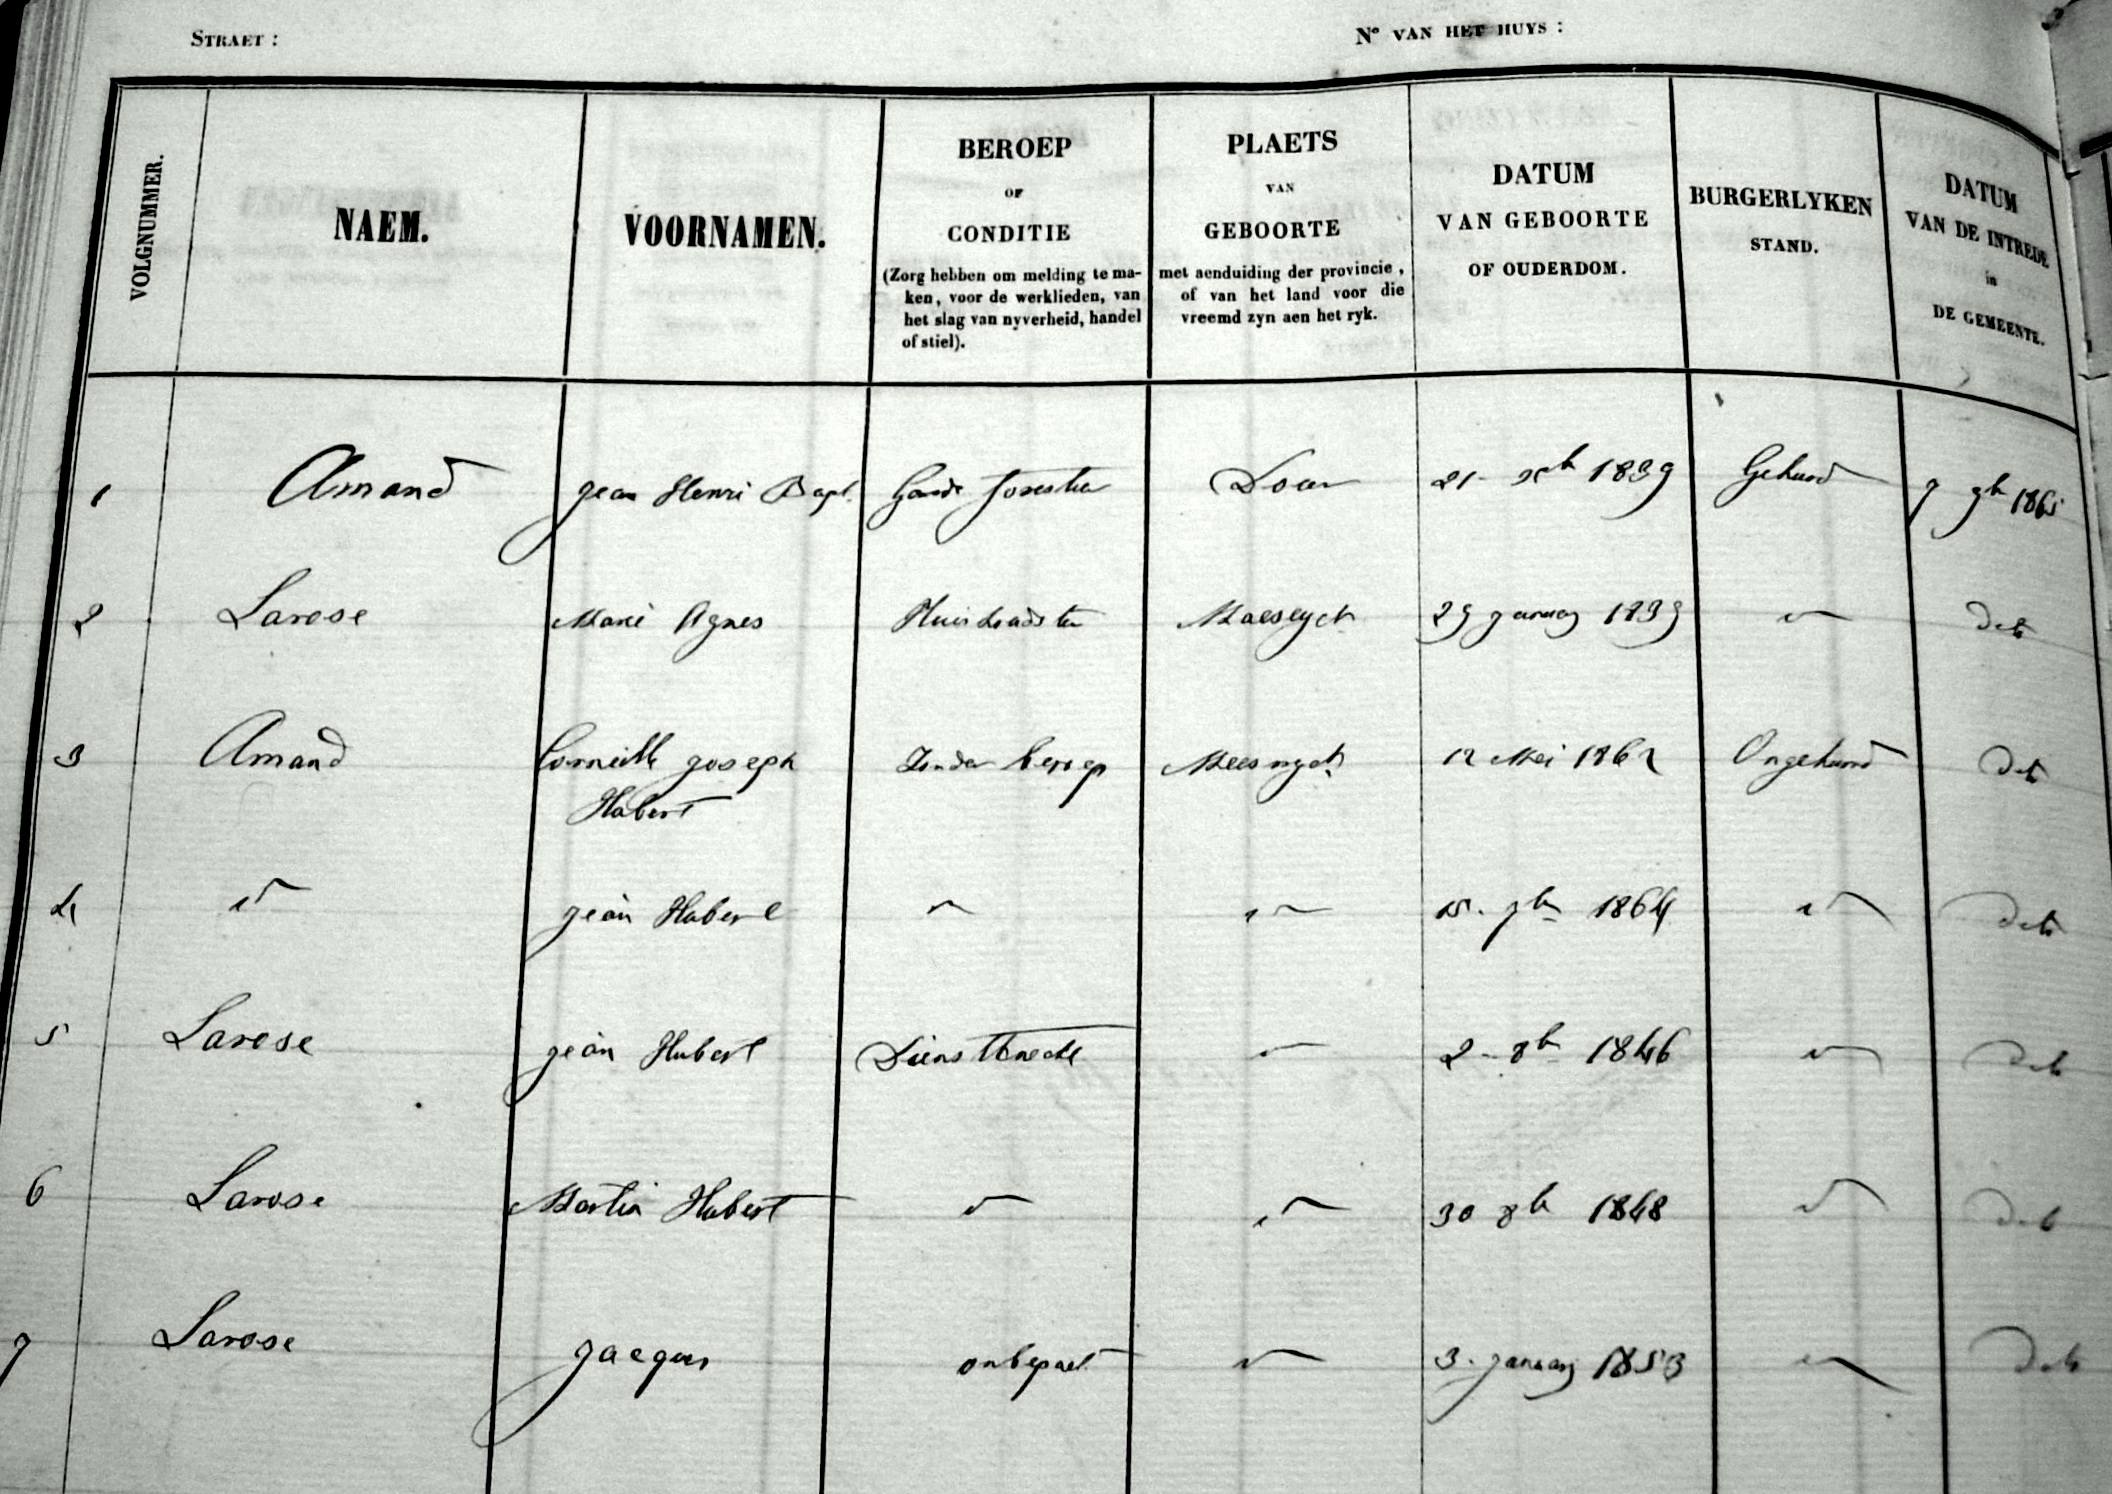 STRAET :
Nº VAN HET HUYS :
VOLGNUMMER.
NAEM.
VOORNAMEN.
BEROEP
OF
CONDITIE
(Zorg hebben om melding te ma-
ken, voor de werklieden, van
het slag van nyverheid, handel
of stiel).
PLAETS
VAN
GEBOORTE
met aenduiding der provincie,
of van het land voor die
vreemd zyn aen het ryk.
DATUM
VAN GEBOORTE
OF OUDERDOM.
BURGERLYKEN
STAND.
DATUM
VAN DE INTREDE
in
DE GEMEENTE.
1 Amand Jean Henri Bapt. Garde forestier Dour 21 1839 Gehuwd 7 9br 1865
2 Larose Marie Agnes Huishoudster Maeseyck 29 January 1839 dito
3 Amand Corneille Joseph Zonder beroep Maeseyck 12 Mei 1862 Ongehuwd dito
Hubert
4 Jean Hubert 15 1864 dito
5 Larose Jean Hubert Dienstknecht 2 8br 1846 dito
6 Larose Martin Hubert 30 8br 1848 dito
7 Larose Jacques onbepaelt 3 January 1853 dito